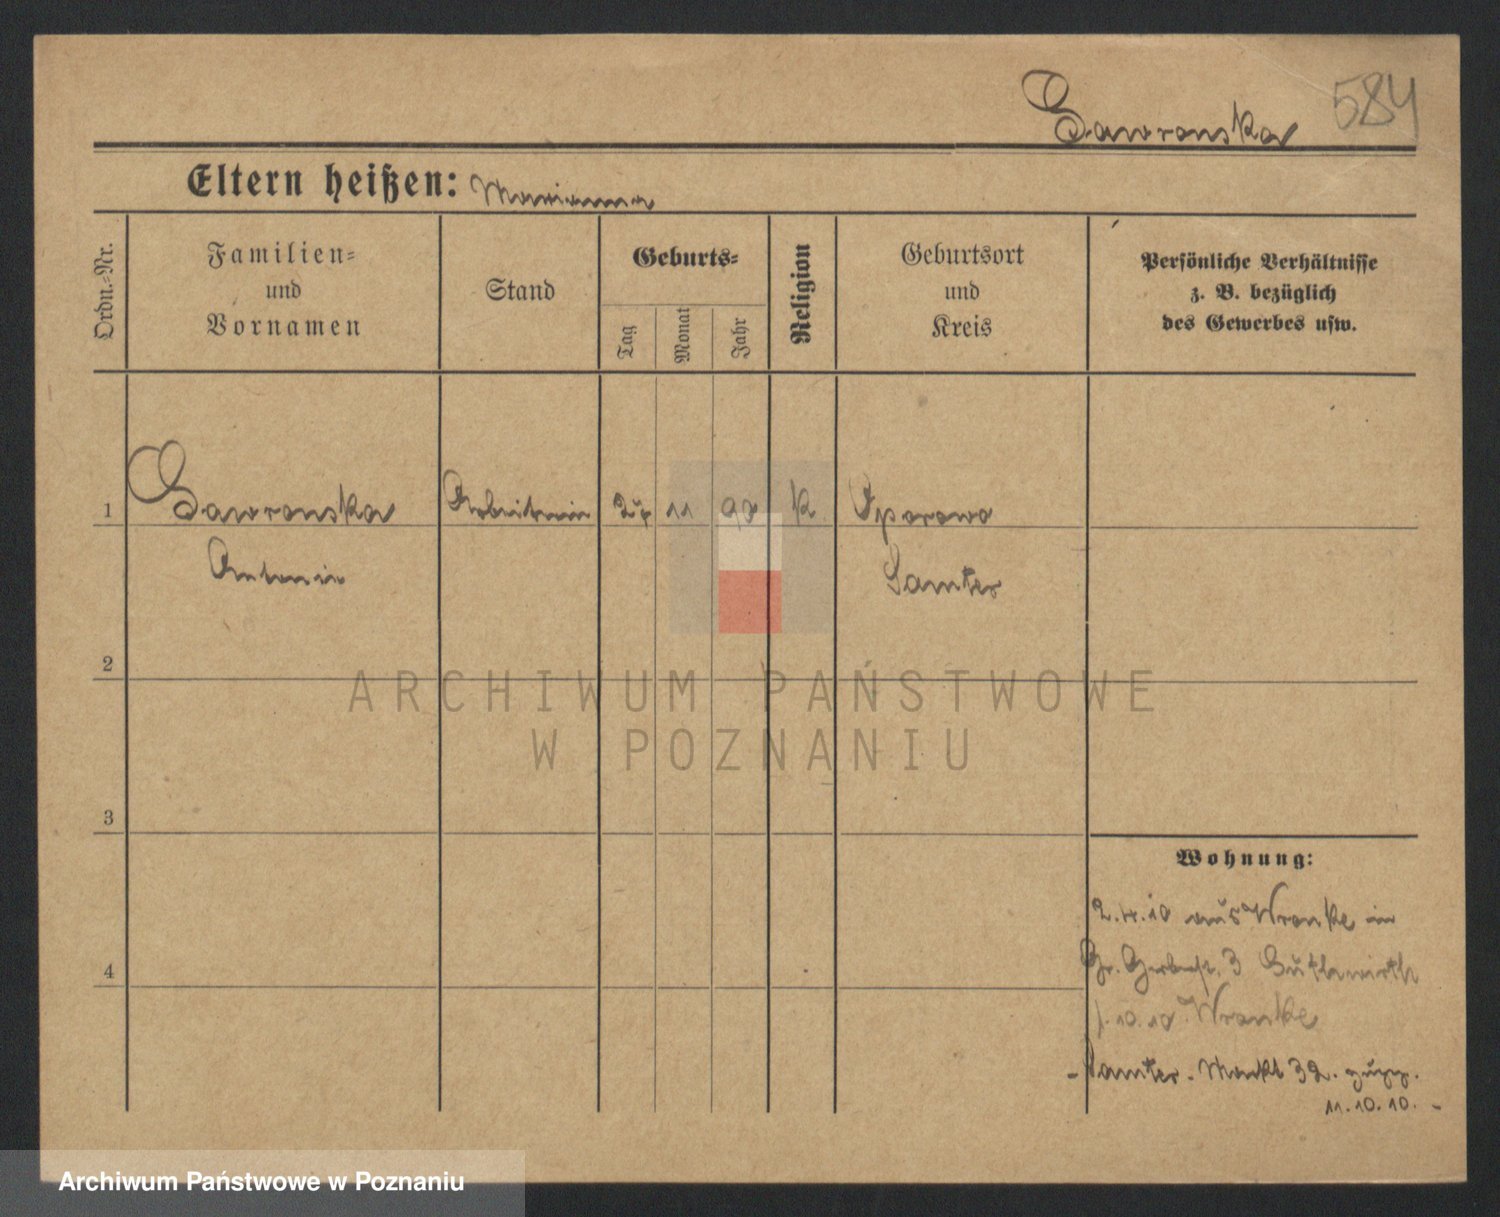 Gawronska
584
Eltern heißen: Marianna
Ordn.-Nr.
Familien-
und
Vornamen
Stand
Geburts-
Tag
Monat
Jahr
Religion
Geburtsort
und
Kreis
Persönliche Verhältnisse
z. B. bezüglich
des Gewerbes usw.
1
Gawronska Arbeiterin 11 90 K
Antonie
Samter
2
3
4
Wohnung:
2.4.10 aus Wronke in
Gr. Gerberst. 3
10.10 Wronke
Samter - Markt 32.
11.10.10. -
ARCHIWUM PAŃSTWOWE
W POZNANIU
Archiwum Państwowe w Poznaniu